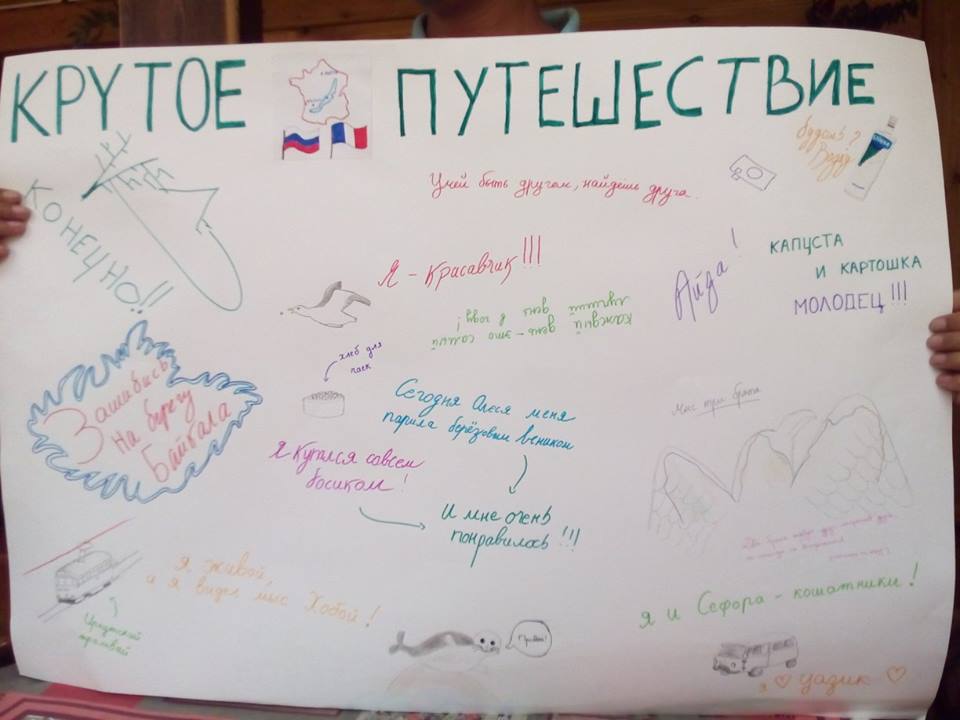 КРУТОЕ ПУТЕШЕСТВИЕ
Будешь?
КОНЕЧНО!!
Умей быть другом, найдёшь друга.
Я - красавчик!!!
Айда!
КАПУСТА
И КАРТОШКА
МОЛОДЕЦ!!!
каждый день - это самый
лучший день в году!
хлеб для
чаек
Зашибись
на берегу
Байкала
Сегодня Олеся меня
парила берёзовым веником
Я купался совсем
босиком!
И мне очень
понравилось!!!
Мыс три брата
Иркутский
трамвай
Я живой,
и я видел мыс Хобой!
Привет!
я и Сефора - кошатники!
я ♡ уазик ♡